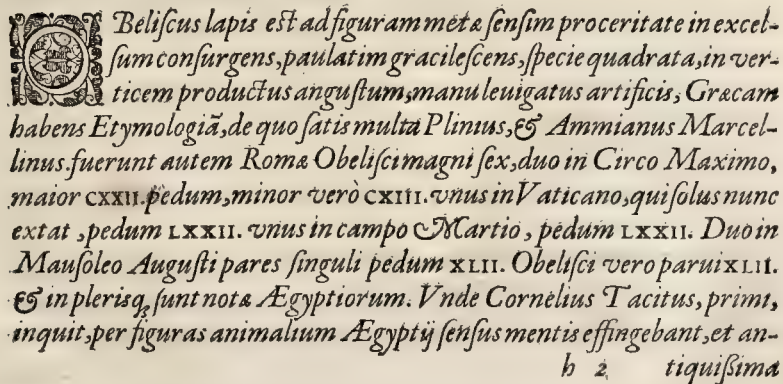 OBeliſcus lapis est ad figuram metæ ſenſim proceritate in excel-
ſum conſurgens, paulatim gracileſcens, ſpecie quadrata, in ver-
ticem productus anguſtum, manu leuigatus artificis, Græcam
habens Etymologiã, de quo ſatis multa Plinius, & Ammianus Marcel-
linus. fuerunt autem Romæ Obeliſci magni ſex, duo in Circo Maximo,
maior CXXII. pedum, minor verò CXIII. vnus in Vaticano, qui ſolus nunc
extat, pedum LXXII. vnus in campo Martio, pedum LXXII. Duo in
Mauſoleo Auguſti pares ſinguli pedum XLII. Obeliſci vero parui XLII.
& in plerisq; ſunt notæ Ægyptiorum. Vnde Cornelius Tacitus, primi,
inquit, per figuras animalium Ægyptij ſenſus mentis effingebant, et an-
h 2 tiquißima